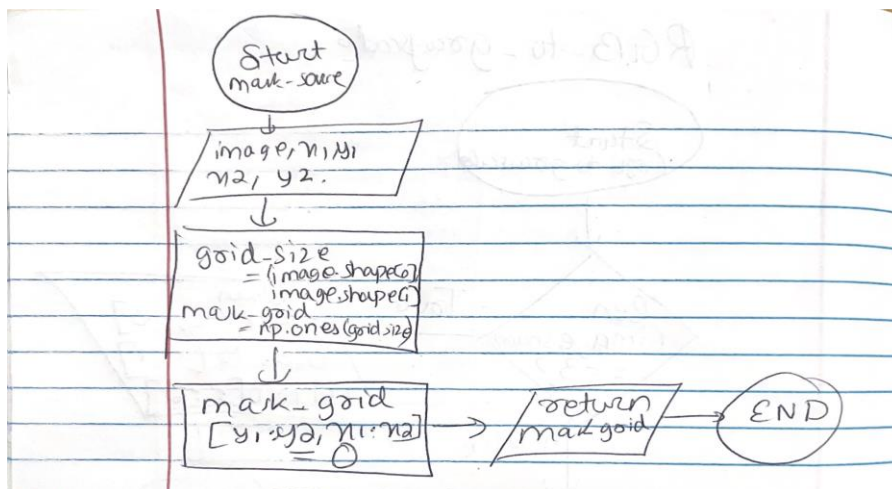 Start
mask-soure
image, x1, y1
x2, y2.
grid_size
= (image.shape[0]
image.shape[1]
mask-grid
= np.ones(grid.size)
mask_grid
[y1:y2, x1:x2]
= 0
return
mask grid
END
RGB-to-grayscale
Start